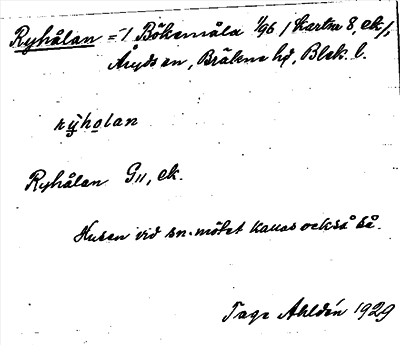 Ryhålan = 1 Bökemåla 1/96 / Kartan 8, ek/,
Åryds sn, Bräkne hd, Blek. l.
rȳholan
Ryhålan G11, ek.
Husen vid sn. mötet kallas också så.
Tage Ahldén 1929